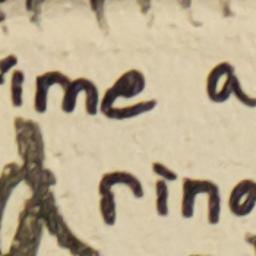 ime a
rino